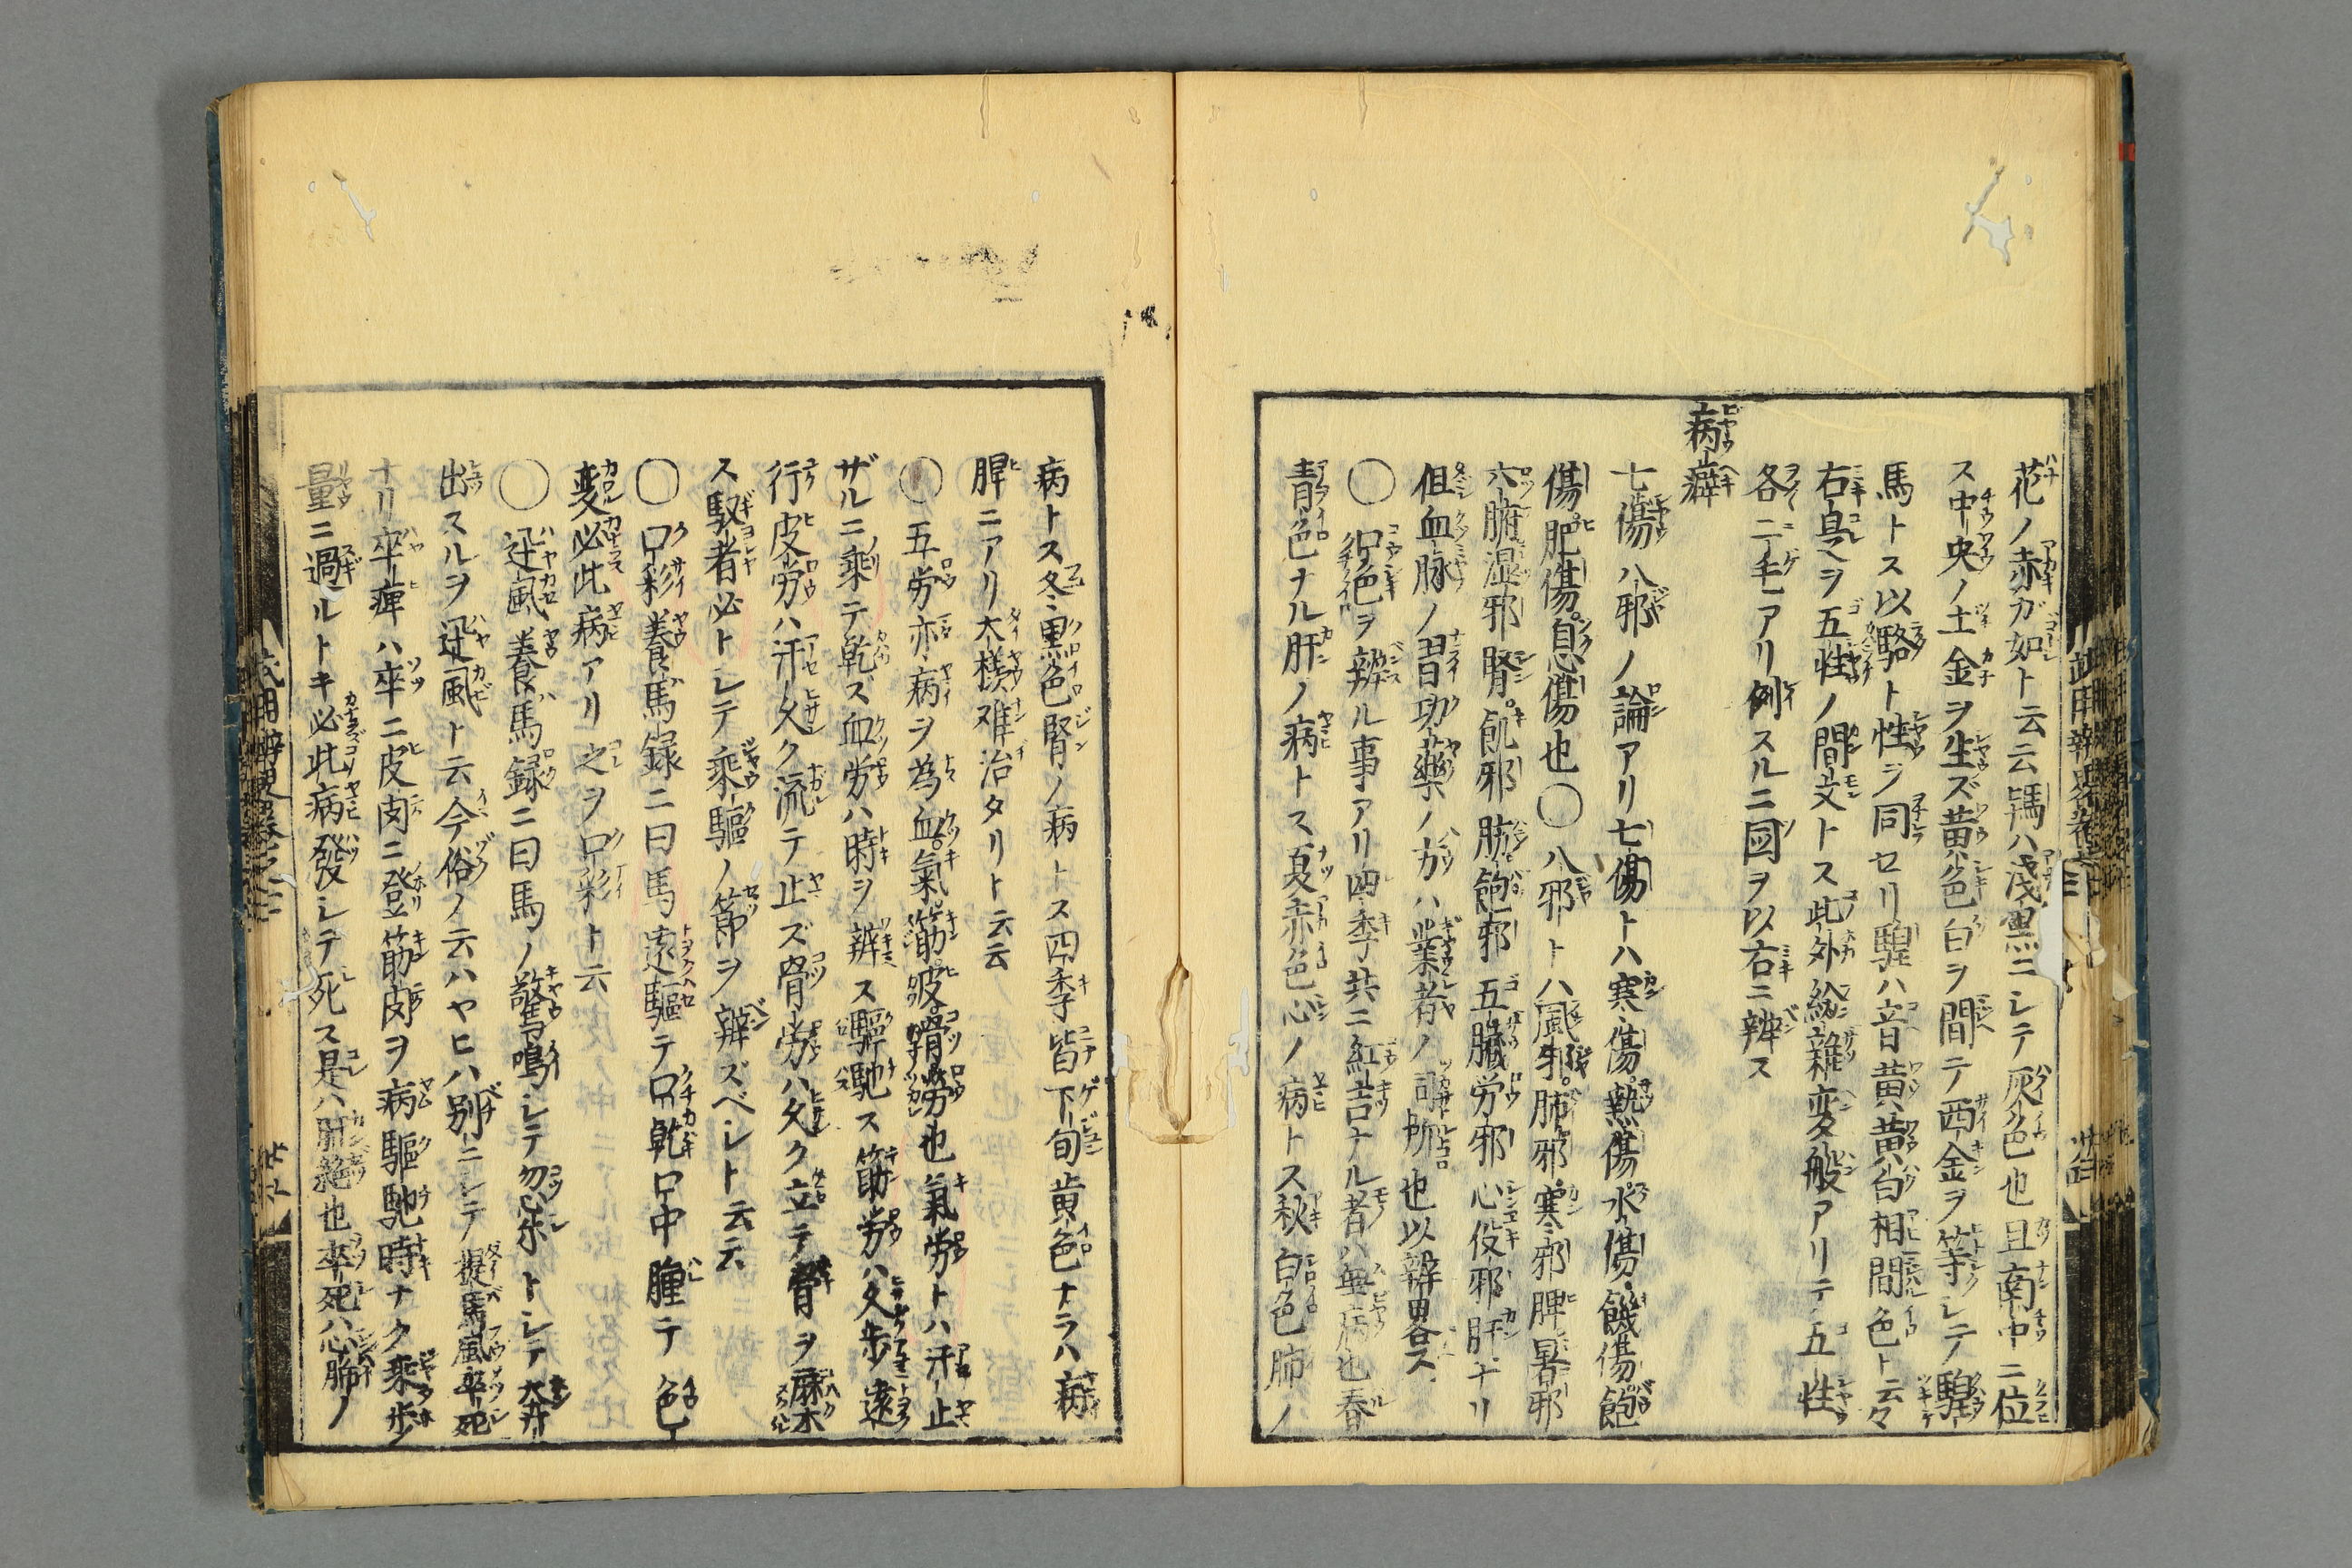 花ノ赤ガ如ト云云駂ハ淺黒ニシテ灰色也且南中ニ位
ス中央ノ土金ヲ生ズ黄色白ヲ間テ西金ヲ等シテ騜
馬トス以駱ト性ヲ同セリ騜ハ音黄黄白相間色ト云々
右是ヲ五性ノ間文トス此外紛雑変般アリテ五性
各ニ毛アリ例スルニ図ヲ以右ニ辨ス
病癖
七傷八邪ノ論アリ七傷トハ寒傷熱傷水傷饑傷飽
傷肥傷息傷也〇八邪トハ風邪肺邪寒邪脾暑邪
六腑湿邪腎飢邪肪飽邪五臓労邪心役邪肝ナリ
但血脉ノ習功薬ノ方ハ業者ノ司所也以辨畧ス
〇色ヲ辨ル事アリ四季共ニ紅吉ナル者ハ無病也春
青色ナル肝ノ病トス夏赤色心ノ病トス秋白色肺ノ
病トス冬黒色腎ノ病トス四季皆下旬黄色ナラハ病
脾ニアリ大様难治タリト云云
〇五労亦病ヲ為血氣筋皮骨労也氣労トハ汗止
ザルニ乘テ乾ス血労ハ時ヲ辨ス驅馳ス筋労ハ久歩遠
行皮労ハ汗久ク流テ止ズ骨労ハ久ク立テ脊ヲ麻木
ス馭者必トシテ乘驅ノ節ヲ辨ズベシト云云
〇口彩養馬録ニ曰馬遠驅テ口乾口中腫テ色
変必此病アリ之ヲ口彩ト云
〇迅風養馬録ニ曰馬ノ驚鳴シテ勿忽トシテ大奔
出スルヲ迅風ト云今俗ノ云ハヤヒハ別ニシテ馬風卒死
ナリ卒痺ハ卒ニ皮肉ニ登筋皮ヲ病驅馳時ナク乘歩ノ
量ニ過ルトキ必此病發シテ死ス是ハ肝絶也卒死ハ心肺ノ